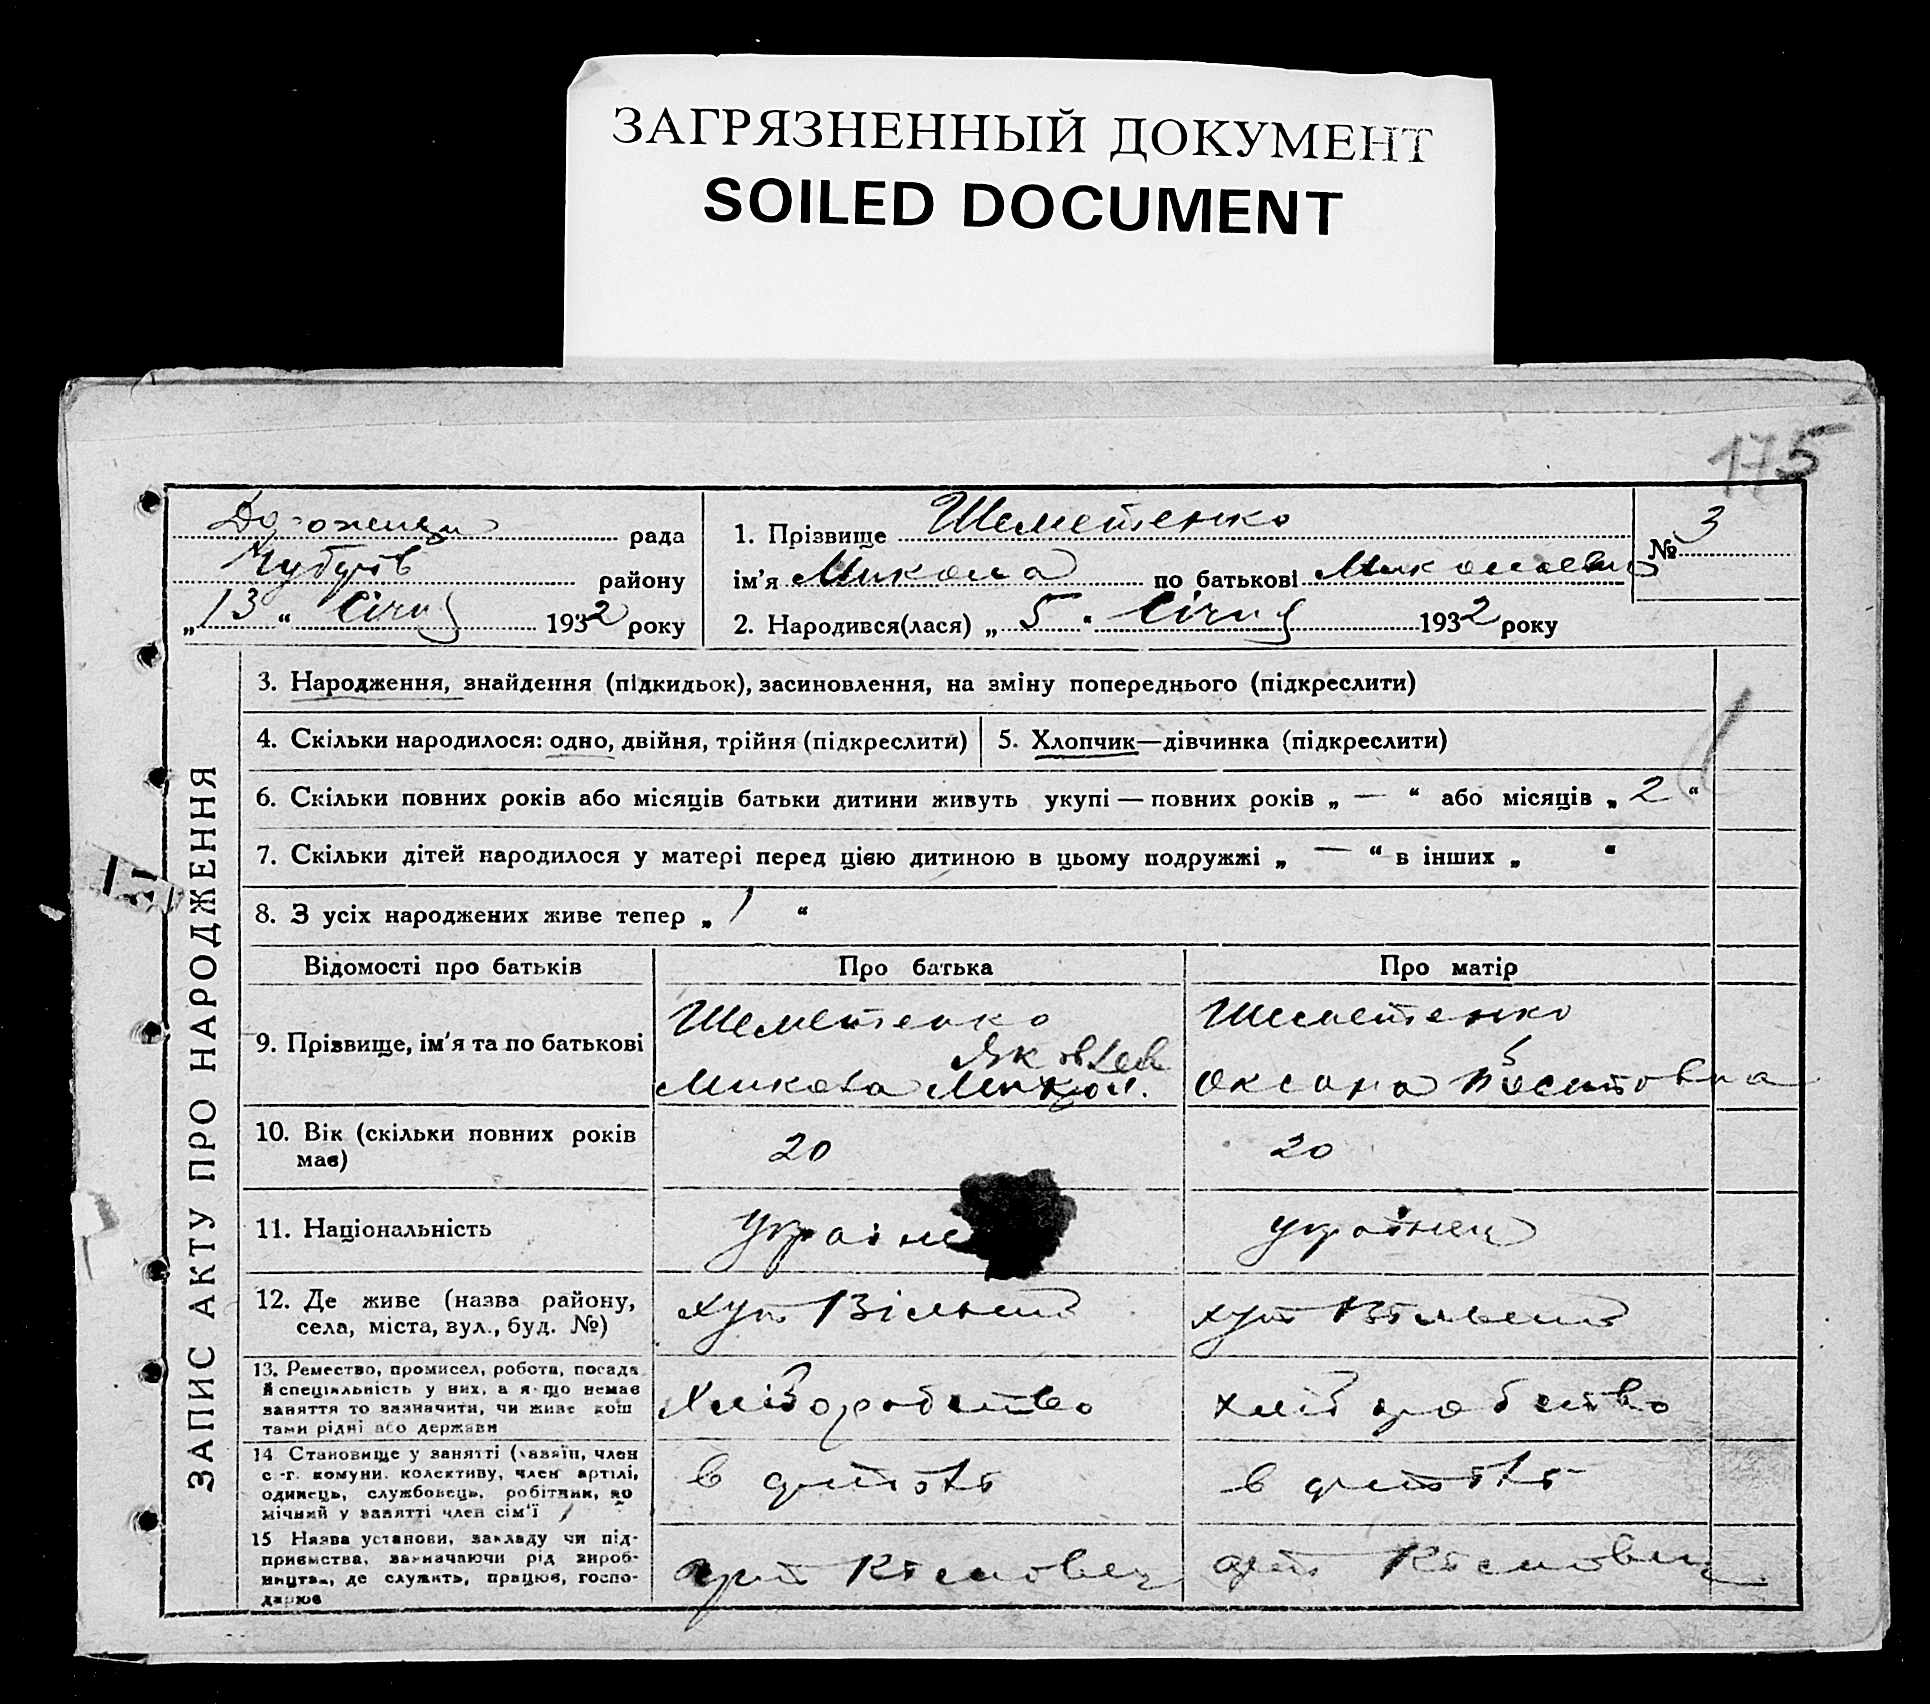 ЗАГРЯЗНЕННЫЙ ДОКУМЕНТ
SOILED DOCUMENT
175
рада
району
„13“ Січня 1932 року
1. Прізвище Шеметенко
ім’я Микола по батькові Миколаевич
2. Народився(лася) „5“ Січня 1932 року
№ 3
ЗАПИС АКТУ ПРО НАРОДЖЕННЯ
3. Народження, знайдення (підкидьок), засиновлення, на зміну попереднього (підкреслити)
4. Скільки народилося: одно, двійня, трійня (підкреслити)
5. Хлопчик—дівчинка (підкреслити)
6. Скільки повних років або місяців батьки дитини живуть укупі — повних років „ — “ або місяців „ 2 “
7. Скільки дітей народилося у матері перед цією дитиною в цьому подружжі „ — “ в інших „ “
8. З усіх народжених живе тепер „ 1 “
Відомості про батьків
Про батька
Про матір
9. Прізвище, ім’я та по батькові
Шеметенко
Яковлев
Микола Микол.
Шеметенко
Оксана
10. Вік (скільки повних років
має)
20
20
11. Національність
україне
українец
12. Де живе (назва району,
села, міста, вул., буд. №)
хут Вільний
хут Вільний
13. Ремество, промисел, робота, посада
й спеціяльність у них, а якщо немає
заняття то зазначити, чи живе кош
тами рідні або держави
Хліборобство
хліборобство
14. Становище у занятті (хазяїн, член
с.-г. комуни, колективу, член артілі,
одинець, службовець, робітник, по
мічний у занятті член сім’ї
в артілі
в артілі
15 Назва установи, закладу чи під-
приємства, зазначаючи рід вироб-
ництва, де служить, працює, госпо-
дарює
арт
арт